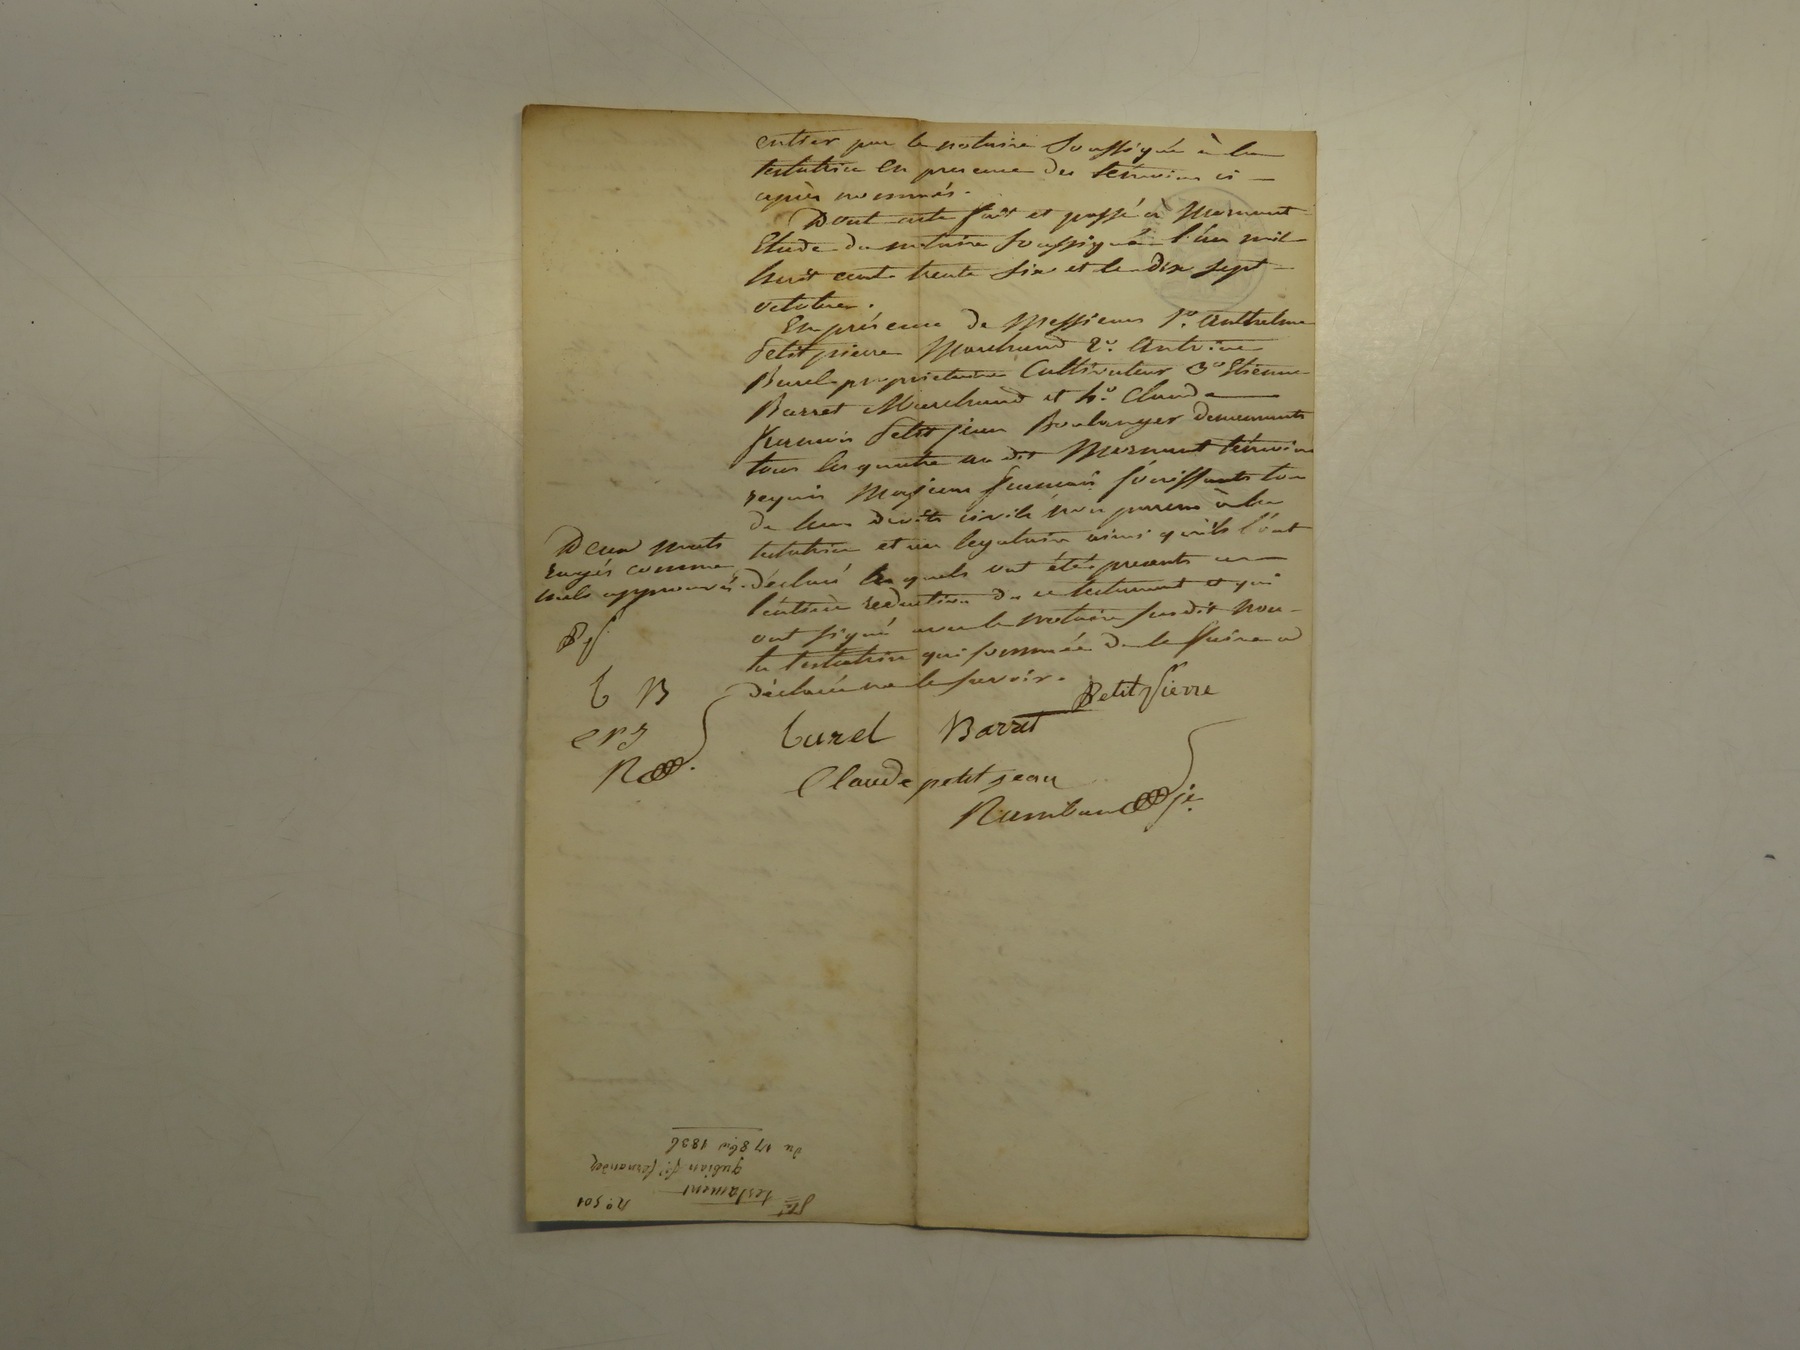 entier par le notaire soussigné à la
testatrice en presence des témoins ci
après nommés.
Dont acte fait et passé à Mornant
Etude du notaire soussigné l'an mil
huit cent trente six et le dix sept
octobre.
En présence de Messieurs 1º. Anthelme
Petitpierre Marchand 2º. Antoine
Burel propriétaire Cultivateur 3º Etienne
Barret Marchand et 4º. Claude
francois Petitjean Boulanger demeurants
tous les quatre au dit Mornant témoins
requis Majeurs francais jouissants
de leurs droits civils non parens à la
testatrice et au legataire ainsi qu'ils l'ont
déclaré lesquels ont étés presents a
l'entière redaction du ce testament et qui
ont signé avec le notaire susdit non
la testatrice qui sommée de le faire a
déclaré ne le savoir.
Deux mots
rayés comme
nuls approuvés.
B B
Petitpierre
burel Barret
Claude petit jean
Rambaud je
nº 501
testament
gubian fe. fernandez
du 17 8bre 1836